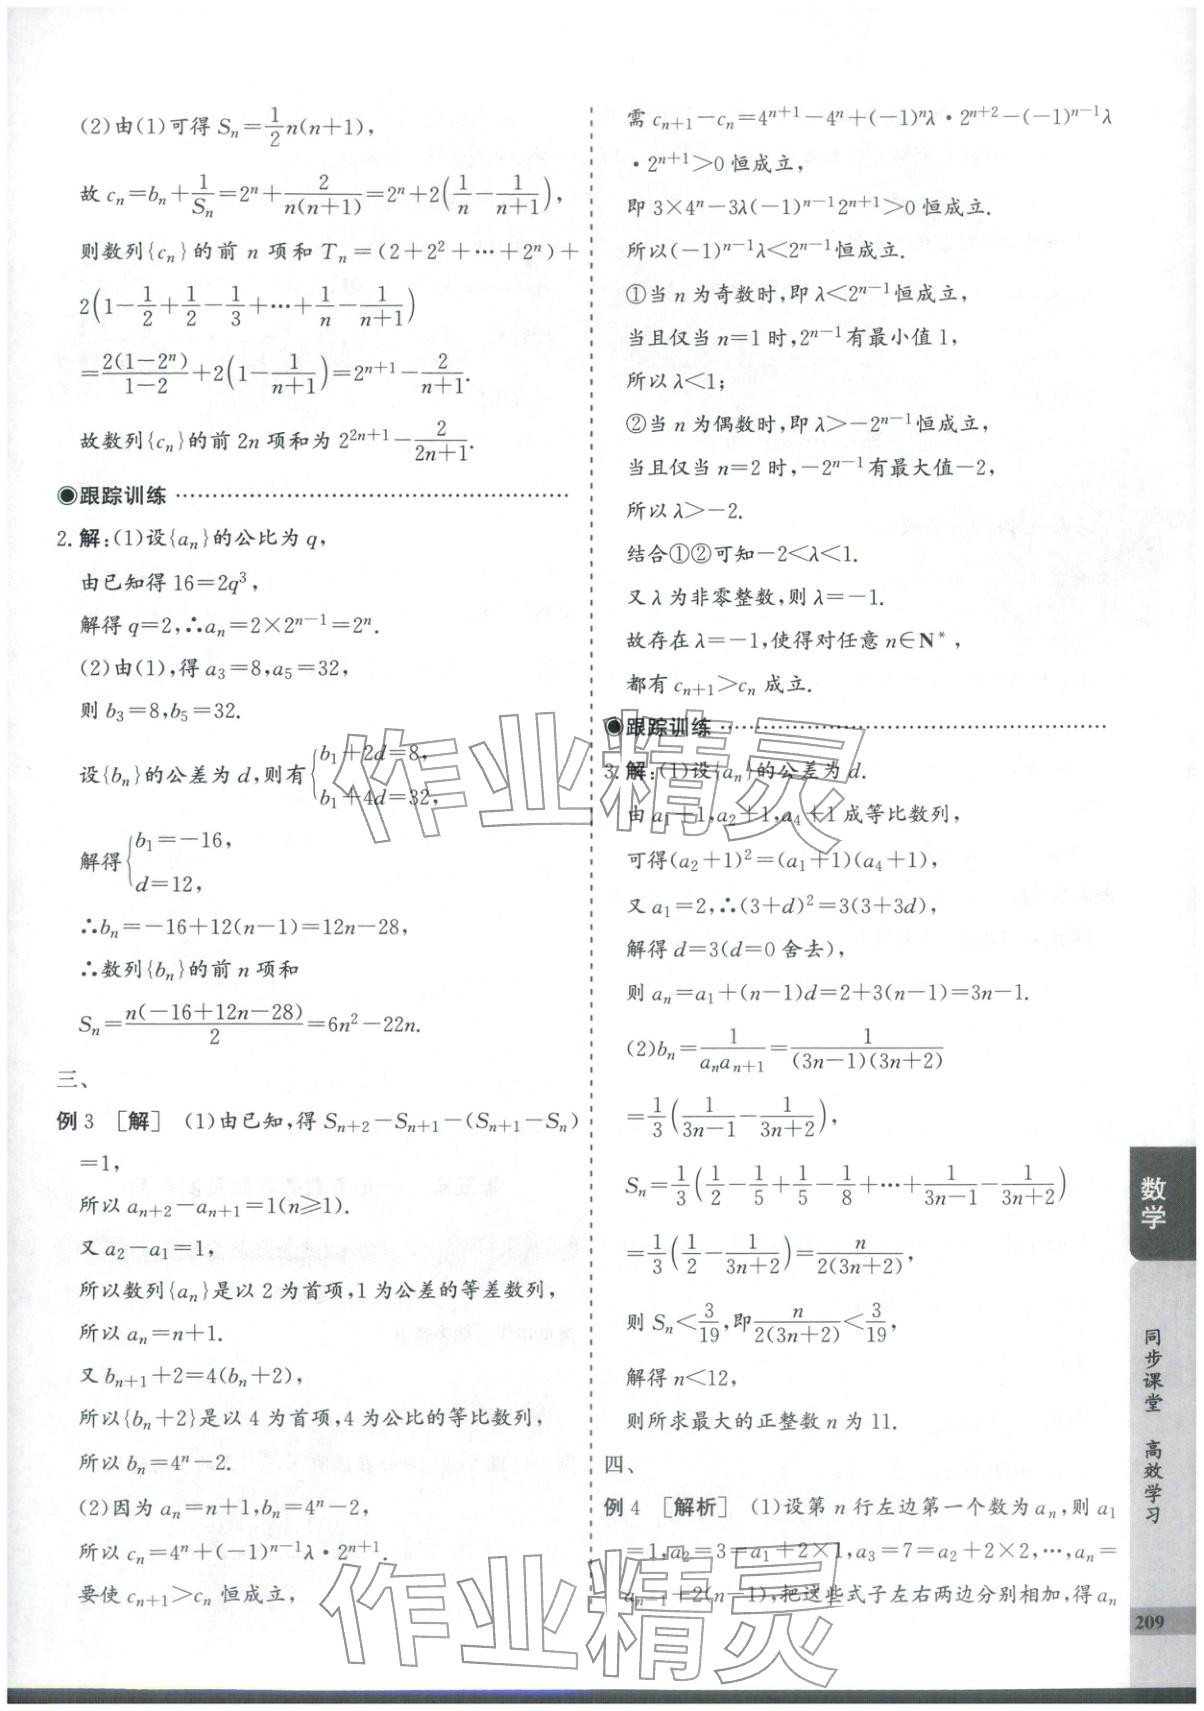 (2)由(1)可得 Sₙ=1/2 n(n+1),
故 cₙ=bₙ+1/Sₙ=2ⁿ+2/(n(n+1))=2ⁿ+2(1/n-1/(n+1)),
则数列{cₙ}的前 n 项和 Tₙ=(2+2²+…+2ⁿ)+
2(1-1/2+1/2-1/3+…+1/n-1/(n+1))
=2(1-2ⁿ)/(1-2)+2(1-1/(n+1))=2ⁿ⁺¹-2/(n+1).
故数列{cₙ}的前 2n 项和为 2²ⁿ⁺¹-2/(2n+1).
◉跟踪训练
2.解:(1)设{aₙ}的公比为 q,
由已知得 16=2q³,
解得 q=2,∴aₙ=2×2ⁿ⁻¹=2ⁿ.
(2)由(1),得 a₃=8,a₅=32,
则 b₃=8,b₅=32.
设{bₙ}的公差为 d,则有{b₁+2d=8,
b₁+4d=32,
解得{b₁=-16,
d=12,
∴bₙ=-16+12(n-1)=12n-28,
∴数列{bₙ}的前 n 项和
Sₙ=n(-16+12n-28)/2=6n²-22n.
三、
例 3 [解] (1)由已知,得 Sₙ₊₂-Sₙ₊₁-(Sₙ₊₁-Sₙ)
=1,
所以 aₙ₊₂-aₙ₊₁=1(n≥1).
又 a₂-a₁=1,
所以数列{aₙ}是以 2 为首项,1 为公差的等差数列,
所以 aₙ=n+1.
又 bₙ₊₁+2=4(bₙ+2),
所以{bₙ+2}是以 4 为首项,4 为公比的等比数列,
所以 bₙ=4ⁿ-2.
(2)因为 aₙ=n+1,bₙ=4ⁿ-2,
所以 cₙ=4ⁿ+(-1)ⁿ⁻¹λ·2ⁿ⁺¹.
要使 cₙ₊₁>cₙ 恒成立,
需 cₙ₊₁-cₙ=4ⁿ⁺¹-4ⁿ+(-1)ⁿλ·2ⁿ⁺²-(-1)ⁿ⁻¹λ
·2ⁿ⁺¹>0 恒成立,
即 3×4ⁿ-3λ(-1)ⁿ⁻¹2ⁿ⁺¹>0 恒成立.
所以(-1)ⁿ⁻¹λ<2ⁿ⁻¹恒成立.
①当 n 为奇数时,即 λ<2ⁿ⁻¹恒成立,
当且仅当 n=1 时,2ⁿ⁻¹有最小值 1,
所以 λ<1;
②当 n 为偶数时,即 λ>-2ⁿ⁻¹恒成立,
当且仅当 n=2 时,-2ⁿ⁻¹有最大值-2,
所以 λ>-2.
结合①②可知-2<λ<1.
又 λ 为非零整数,则 λ=-1.
故存在 λ=-1,使得对任意 n∈N*,
都有 cₙ₊₁>cₙ 成立.
◉跟踪训练
3.解:(1)设{aₙ}的公差为 d.
由 a₁+1,a₂+1,a₄+1 成等比数列,
可得(a₂+1)²=(a₁+1)(a₄+1),
又 a₁=2,∴(3+d)²=3(3+3d),
解得 d=3(d=0 舍去),
则 aₙ=a₁+(n-1)d=2+3(n-1)=3n-1.
(2)bₙ=1/(aₙaₙ₊₁)=1/((3n-1)(3n+2))
=1/3(1/(3n-1)-1/(3n+2)),
Sₙ=1/3(1/2-1/5+1/5-1/8+…+1/(3n-1)-1/(3n+2))
=1/3(1/2-1/(3n+2))=n/(2(3n+2)),
则 Sₙ<3/19,即n/(2(3n+2))<3/19,
解得 n<12,
则所求最大的正整数 n 为 11.
四、
例 4 [解析] (1)设第 n 行左边第一个数为 aₙ,则 a₁
=1,a₂=3=a₁+2×1,a₃=7=a₂+2×2,…,aₙ=
aₙ₋₁+2(n-1),把这些式子左右两边分别相加,得 aₙ
数学
同步课堂 高效学习
209
作业精灵
作业精灵